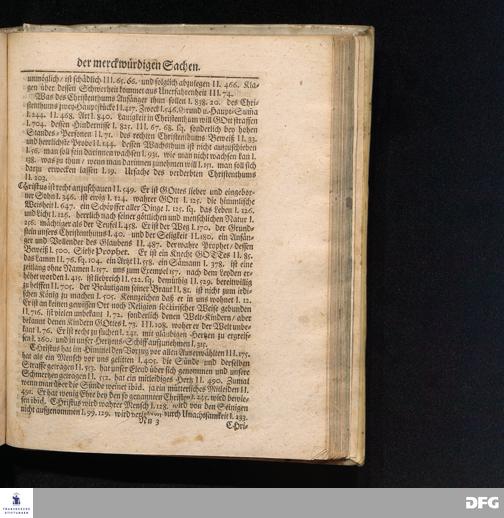 der merckwürdigen Sachen.
unmöglich / ist schädlich III. 65. 66. und folglich abzulegen II. 466. Kla-
gen über dessen Schwerheit kommet aus Unerfahrenheit III. 74.
Was des Christenthums Anfänger thun sollen I. 838. 20. des Chri-
stenthums zwey Hauptstücke II. 417. Zweck I. 546. Grund u. Haupt-Suma
I. 244. II. 468. Art I. 840. Lauigkeit in Christenthum will GOtt straffen
I. 704. dessen Hindernisse I. 825. III. 67. 68. sq. sonderlich bey hohen
Standes-Personen I. 71. des rechten Christenthums Beweiß II. 33.
und herrlichste Probe II. 144. dessen Wachsthum ist nicht auszuschieben
I. 56. man soll sein darinnen wachsen I. 931. wie man nicht wachsen kan I.
138. was zu thun / wenn man darinnen zunehmen will I. 151. man soll sich
dazu erwecken lassen I. 19. Ursache des verderbten Christenthums
II. 203.
Christus ist recht anzuschauen II. 149. Er ist GOttes lieber und eingebor-
ner Sohn I. 346. ist ewig I. 124. wahrer GOtt I. 125. die himmlische
Weisheit I. 647. ein Schöpffer aller Dinge I. 125. sq. das Leben I. 126.
und Licht I. 126. herrlich nach seiner göttlichen und menschlichen Natur I.
216. mächtiger als der Teufel I. 458. Er ist der Weg I. 170. der Grund-
stein unsers Christenthums I. 40. und der Seligkeit II. 180. ein Anfän-
ger und Vollender des Glaubens II. 487. der wahre Prophet / dessen
Beweiß I. 500. Siehe Prophet. Er ist ein Knecht GOTTes II. 85.
das Lamm II. 76. sq. 104. ein Artzt II. 518. ein Sämann I. 378. ist eine
zeitlang ohne Namen I. 157. uns zum Exempel 157. nach dem Leyden er-
höhet worden I. 415. ist liebreich II. 522. sq. demüthig II. 529. bereitwillig
zu helffen II. 705. der Bräutigam seiner Braut II. 81. ist nicht zum irdi-
schen König zu machen I. 505. Kennzeichen daß er in uns wohnet I. 12.
Er ist an keinen gewissen Ort noch Religion sectirischer Weise gebunden
II. 716. ist vielen unbekant I. 72. sonderlich denen Welt-Kindern / aber
bekannt denen Kindern GOttes I. 73. III. 108. woher er der Welt unbe-
kant I. 76. Er ist recht zu suchen I. 241. mit gläubigen Hertzen zu ergreif-
fen I. 260. und in unser Hertzens-Schiff aufzunehmen I. 315.
Christus hat im Himmel den Vorzug vor allen Auserwählten III. 175.
hat als ein Mensch vor uns gelitten I. 403. die Sünde und derselben
Straffe getragen II. 513. hat unser Elend über sich genommen und unsere
Schmertzen getragen II. 512. hat ein mitleidiges Hertz II. 490. Zumal
wenn man über die Sünde weinet ibid. ja ein mütterliches Mitleiden II.
491. Er hat wenig Ehre bey den so genannten Christen I. 245. wird bewie-
sen ibid. CHristus wird wahrer Mensch I. 128. wird von den Seinigen
nicht aufgenommen I. 99. 129. wird verlohren durch Unachtsamkeit I. 233.
Nn 3
Chri-
FRANCKESCHE STIFTUNGEN
DFG